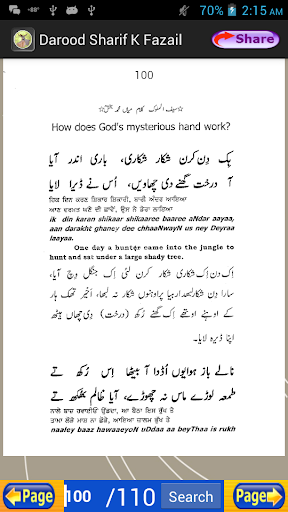 2:15 AM
Darood Sharif K Fazail
Share
100
☆سیف الملوک کلام میاں محمد بخش☆
How does God's mysterious hand work?
ہِک دِن کرن شکار شکاری، باری اندر آیا
آ درخت گھنے دی چھاویں، اُس نے ڈیرا لایا
ਹਿਕ ਦਿਨ ਕਰਣ ਸ਼ਿਕਾਰ ਸ਼ਿਕਾਰੀ, ਬਾਰੀ ਅੰਦਰ ਆਇਆ
ਆਣ ਦਰਖ਼ਤ ਘਣੇ ਦੀ ਛਾਵੇਂ, ਉਸ ਨੇ ਡੇਰਾ ਲਾਇਆ
ik din karan shikaar shikaaree baaree aNdar aayaa,
aan darakht ghaney dee chhaaNwayN us ney Deyraa
laayaa.
One day a hunter came into the jungle to
hunt and sat under a large shady tree.
اِک دِن اِک شکاری شکار کرن لئی اِک جنگل وِچ آیا،
سارا دِن شکار لبھدا رہیا پر اوہنوں شکار نہ لبھا، اخیر تھک ہار
کے اوہنے اوتھے اِک گھنے رُکھ (درخت) دِی چھاں بیٹھ
اپنا ڈیرہ لایا.
نالے باز ہوایوں اُڈدا آ بیٹھا اِس رُکھ تے
طمعہ لوڑے ماس نہ چھوڑے، آیا ظالم بھکھ تے
ਨਾਲੇ ਬਾਜ਼ ਹਵਾਈਓਂ ਉੱਡਦਾ, ਆ ਬੈਠਾ ਇਸ ਰੁੱਖ ਤੇ
naaley baaz hawaaeyoN uDdaa aa beyThaa is rukh
Page
100
/110
Search
Page